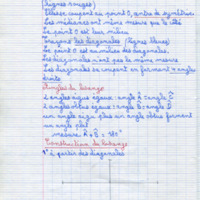 (lignes rouges)
Elles se coupent au point O, centre de symétrie.
Les médianes ont même mesure que le côté
Le point O est leur milieu
Traçons les diagonales (lignes bleues)
Le point O est au milieu des diagonales.
Les diagonales n'ont pas la même mesure
Les diagonales se coupent en formant 4 angles
droits
Angles du losange
2 angles aigus égaux : angle A = angle C
2 angles obtus égaux : angle B = angle D
un angle aigu plus un angle obtus forment
un angle plat
mesure A + B = 180°
Construction du losange
1° à partir des diagonales